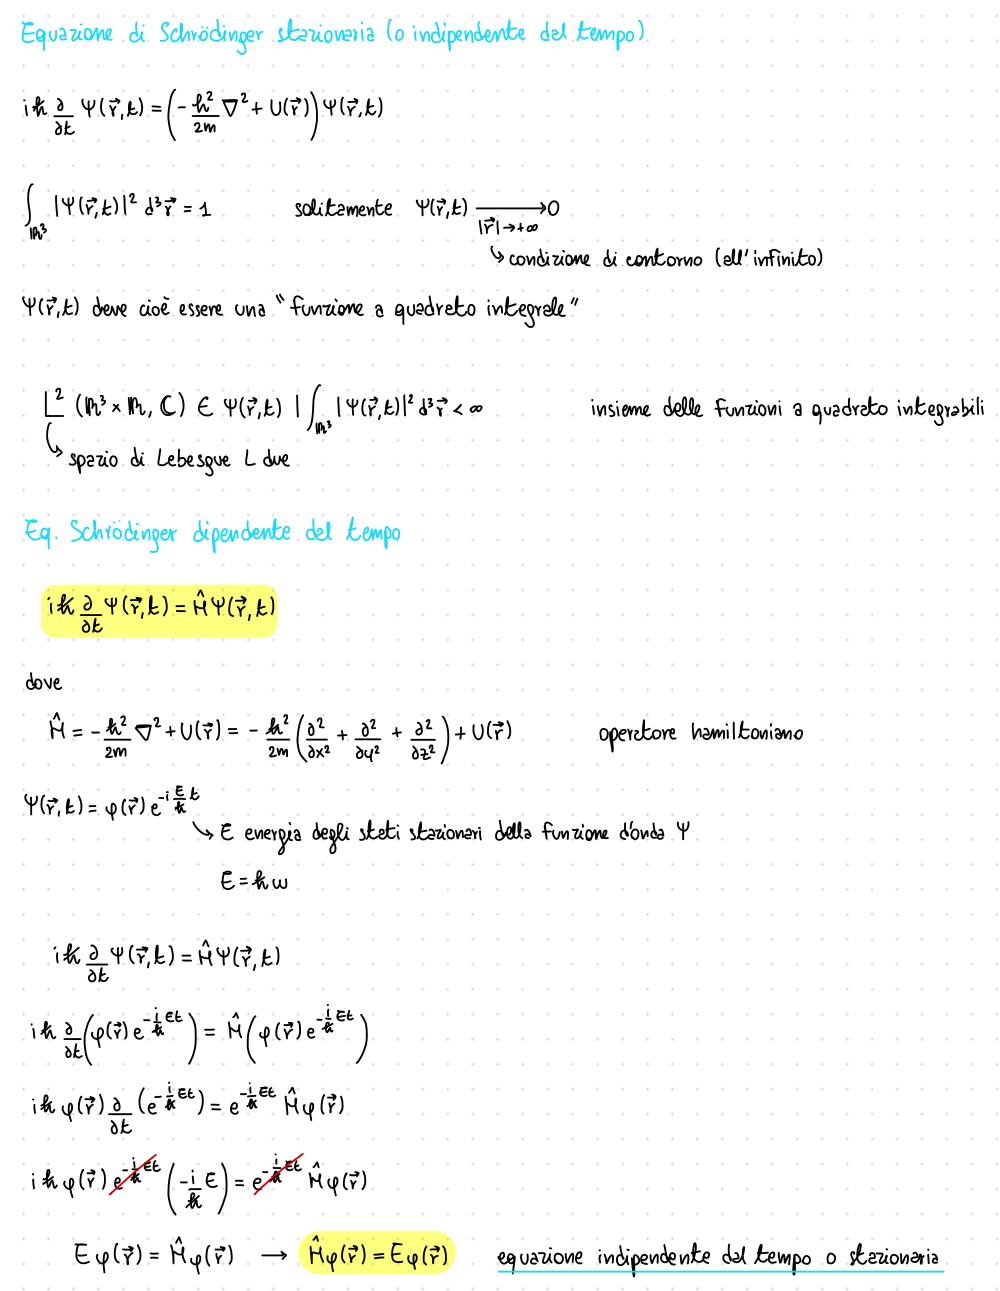 Equazione di Schrödinger stazionaria (o indipendente dal tempo)
iℏ ∂/∂t Ψ(r⃗,t) = (-ℏ²/2m ∇² + U(r⃗)) Ψ(r⃗,t)
∫_ℝ³ |Ψ(r⃗,t)|² d³r⃗ = 1 solitamente Ψ(r⃗,t) ⟶ 0
|r⃗|→+∞
↳ condizione di contorno (all'infinito)
Ψ(r⃗,t) deve cioè essere una "funzione a quadrato integrale"
L² (ℝ³ × ℝ, ℂ) ∈ Ψ(r⃗,t) | ∫_ℝ³ |Ψ(r⃗,t)|² d³r⃗ < ∞ insieme delle funzioni a quadrato integrabili
↳ spazio di Lebesgue L due
Eq. Schrödinger dipendente dal tempo
iℏ ∂/∂t Ψ(r⃗,t) = Ĥ Ψ(r⃗,t)
dove
Ĥ = -ℏ²/2m ∇² + U(r⃗) = -ℏ²/2m (∂²/∂x² + ∂²/∂y² + ∂²/∂z²) + U(r⃗) operatore hamiltoniano
Ψ(r⃗,t) = φ(r⃗) e^(-i E/ℏ t)
↳ E energia degli stati stazionari della funzione d'onda Ψ
E = ℏω
iℏ ∂/∂t Ψ(r⃗,t) = Ĥ Ψ(r⃗,t)
iℏ ∂/∂t (φ(r⃗) e^(-i/ℏ Et)) = Ĥ (φ(r⃗) e^(-i/ℏ Et))
iℏ φ(r⃗) ∂/∂t (e^(-i/ℏ Et)) = e^(-i/ℏ Et) Ĥ φ(r⃗)
iℏ φ(r⃗) e^(-i/ℏ Et) (-i/ℏ E) = e^(-i/ℏ Et) Ĥ φ(r⃗)
E φ(r⃗) = Ĥ φ(r⃗) → Ĥ φ(r⃗) = E φ(r⃗) equazione indipendente dal tempo o stazionaria